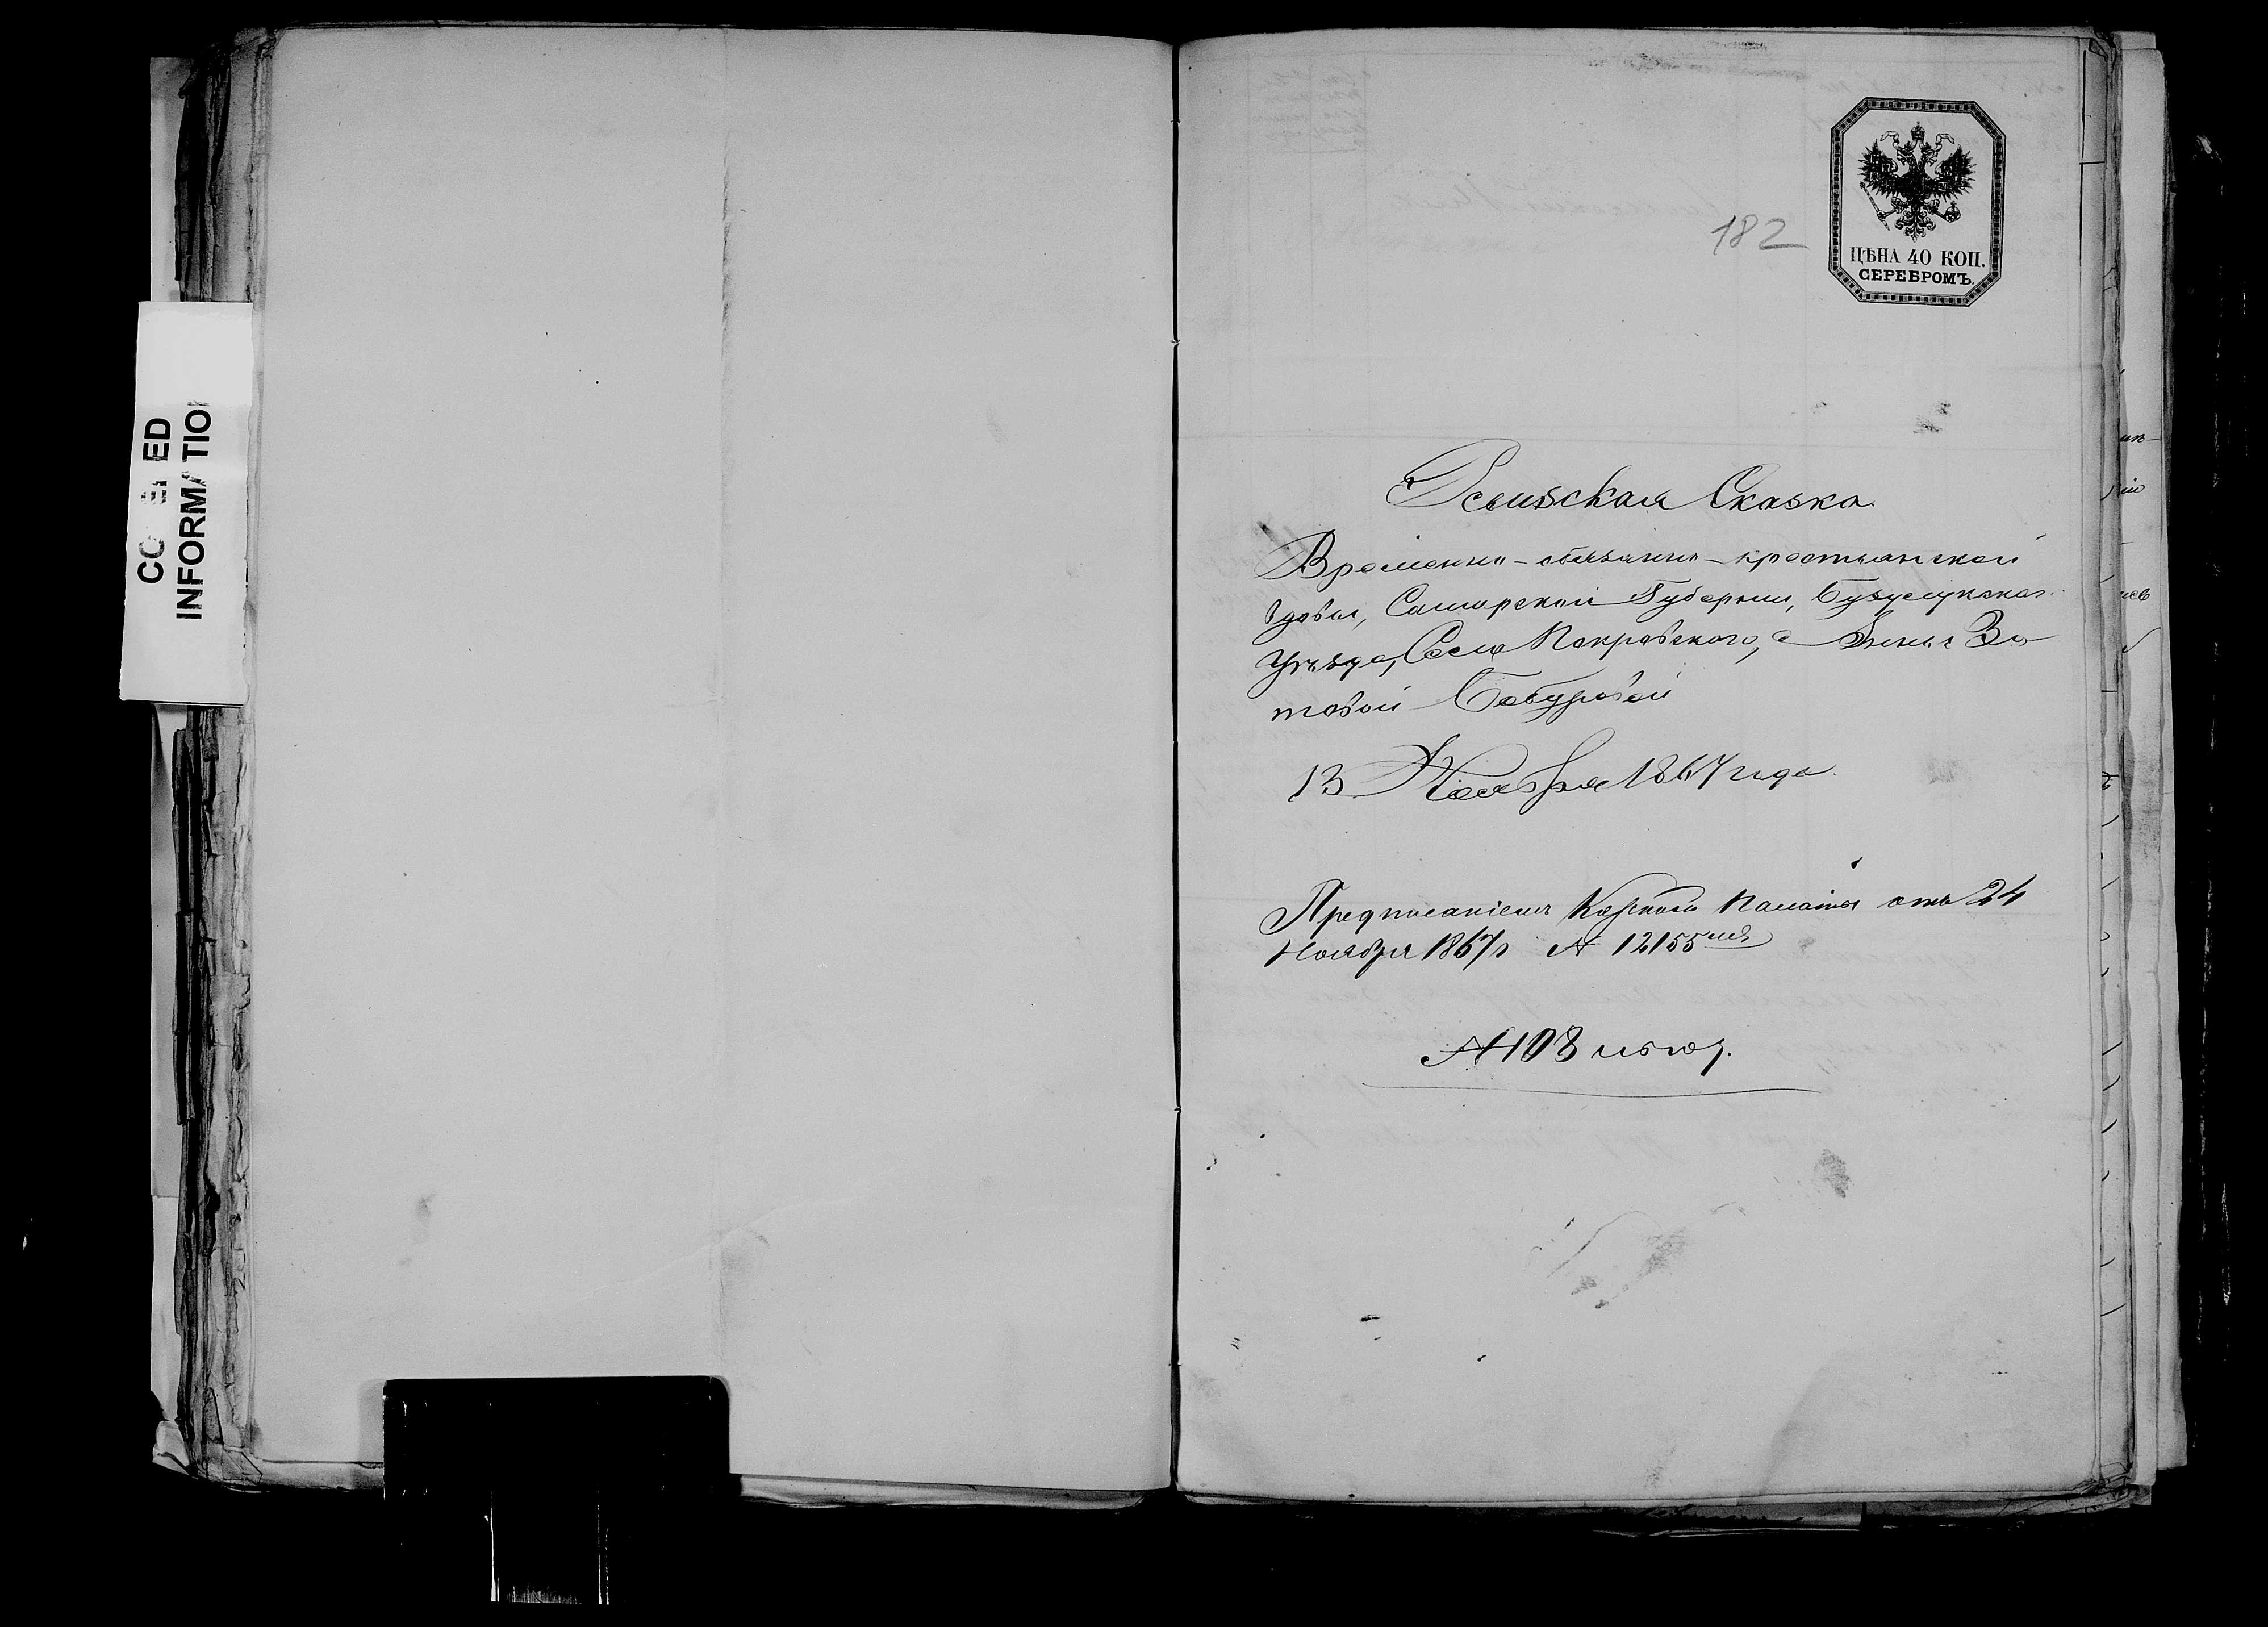 182
ЦѢНА 40 КОП.
СЕРЕБРОМЪ.
INFORMATIO
Ревизская Сказка
Временно-обязанно-крестьянской
вдовы, Самарской Губернiи, Бузулукскаго
Уѣзда, Села Покровскаго,
товой
13 Ноября 1867 года
Предписанiемъ Казенной Палаты отъ 24
Ноября 1867 г № 12155
№ 108